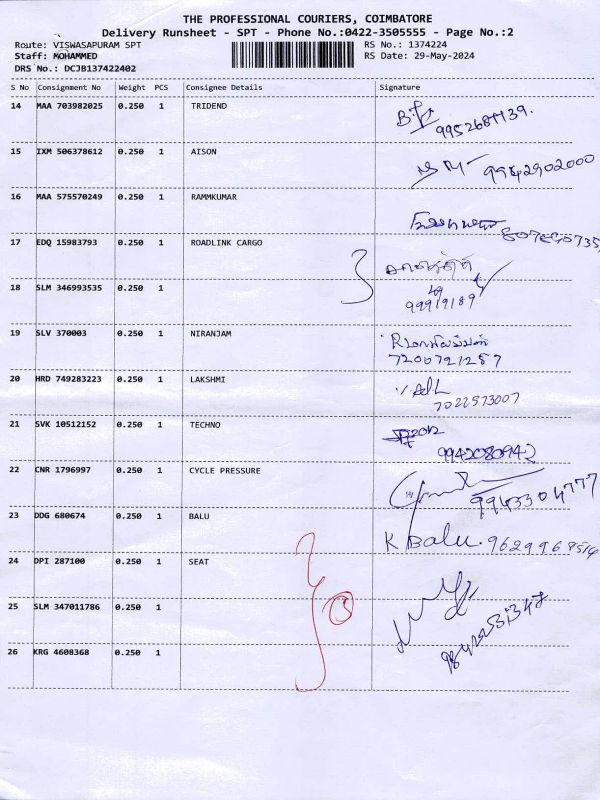 THE PROFESSIONAL COURIERS, COIMBATORE
Delivery Runsheet - SPT - Phone No.:0422-3505555 - Page No.:2
Route: VISWASAPURAM SPT RS No.: 1374224
Staff: MOHAMMED RS Date: 29-May-2024
DRS No.: DCJB137422402
S No Consignment No Weight PCS Consignee Details Signature
14 MAA 703982025 0.250 1 TRIDEND
15 IXM 506378612 0.250 1 AISON
9942902000
16 MAA 575570249 0.250 1 RAMMKUMAR
17 EDQ 15983793 0.250 1 ROADLINK CARGO
18 SLM 346993535 0.250 1
19 SLV 370003 0.250 1 NIRANJAM
7200721257
20 HRD 749283223 0.250 1 LAKSHMI
7022573007
21 SVK 10512152 0.250 1 TECHNO
9942080942
22 CNR 1796997 0.250 1 CYCLE PRESSURE
9943304777
23 DDG 680674 0.250 1 BALU
K Balu.
24 DPI 287100 0.250 1 SEAT
25 SLM 347011786 0.250 1
26 KRG 4608368 0.250 1